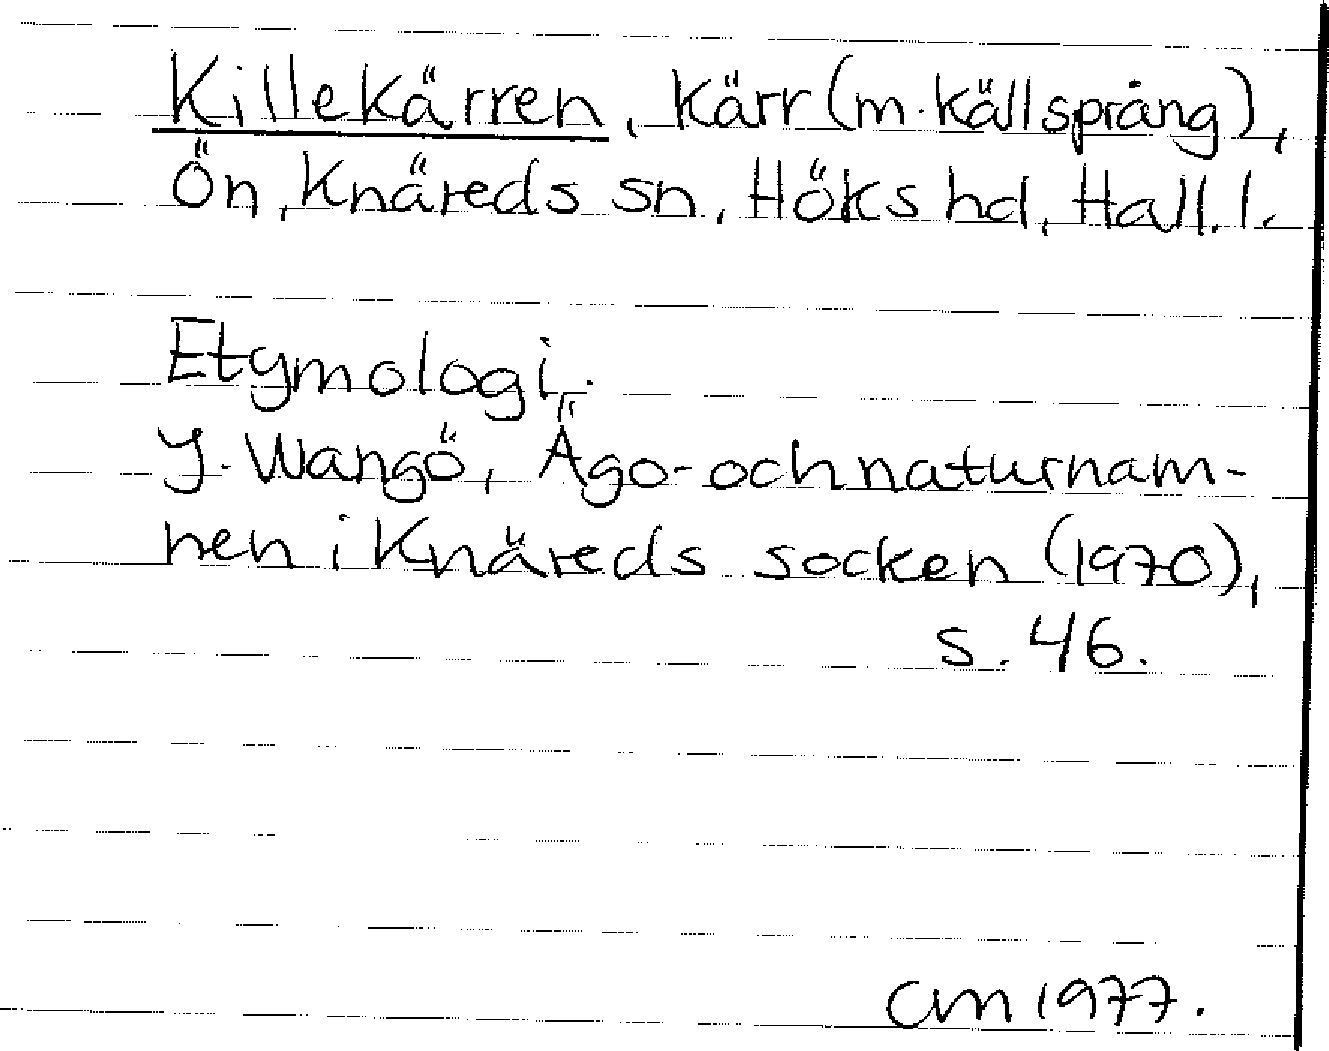 Killekärren, kärr (m. källsprång),
Ön, Knäreds sn, Höks hd, Hall. l.
Etymologi.
J. Wangö, Ägo- och naturnam-
nen i Knäreds socken (1970),
s. 46.
CM 1977.